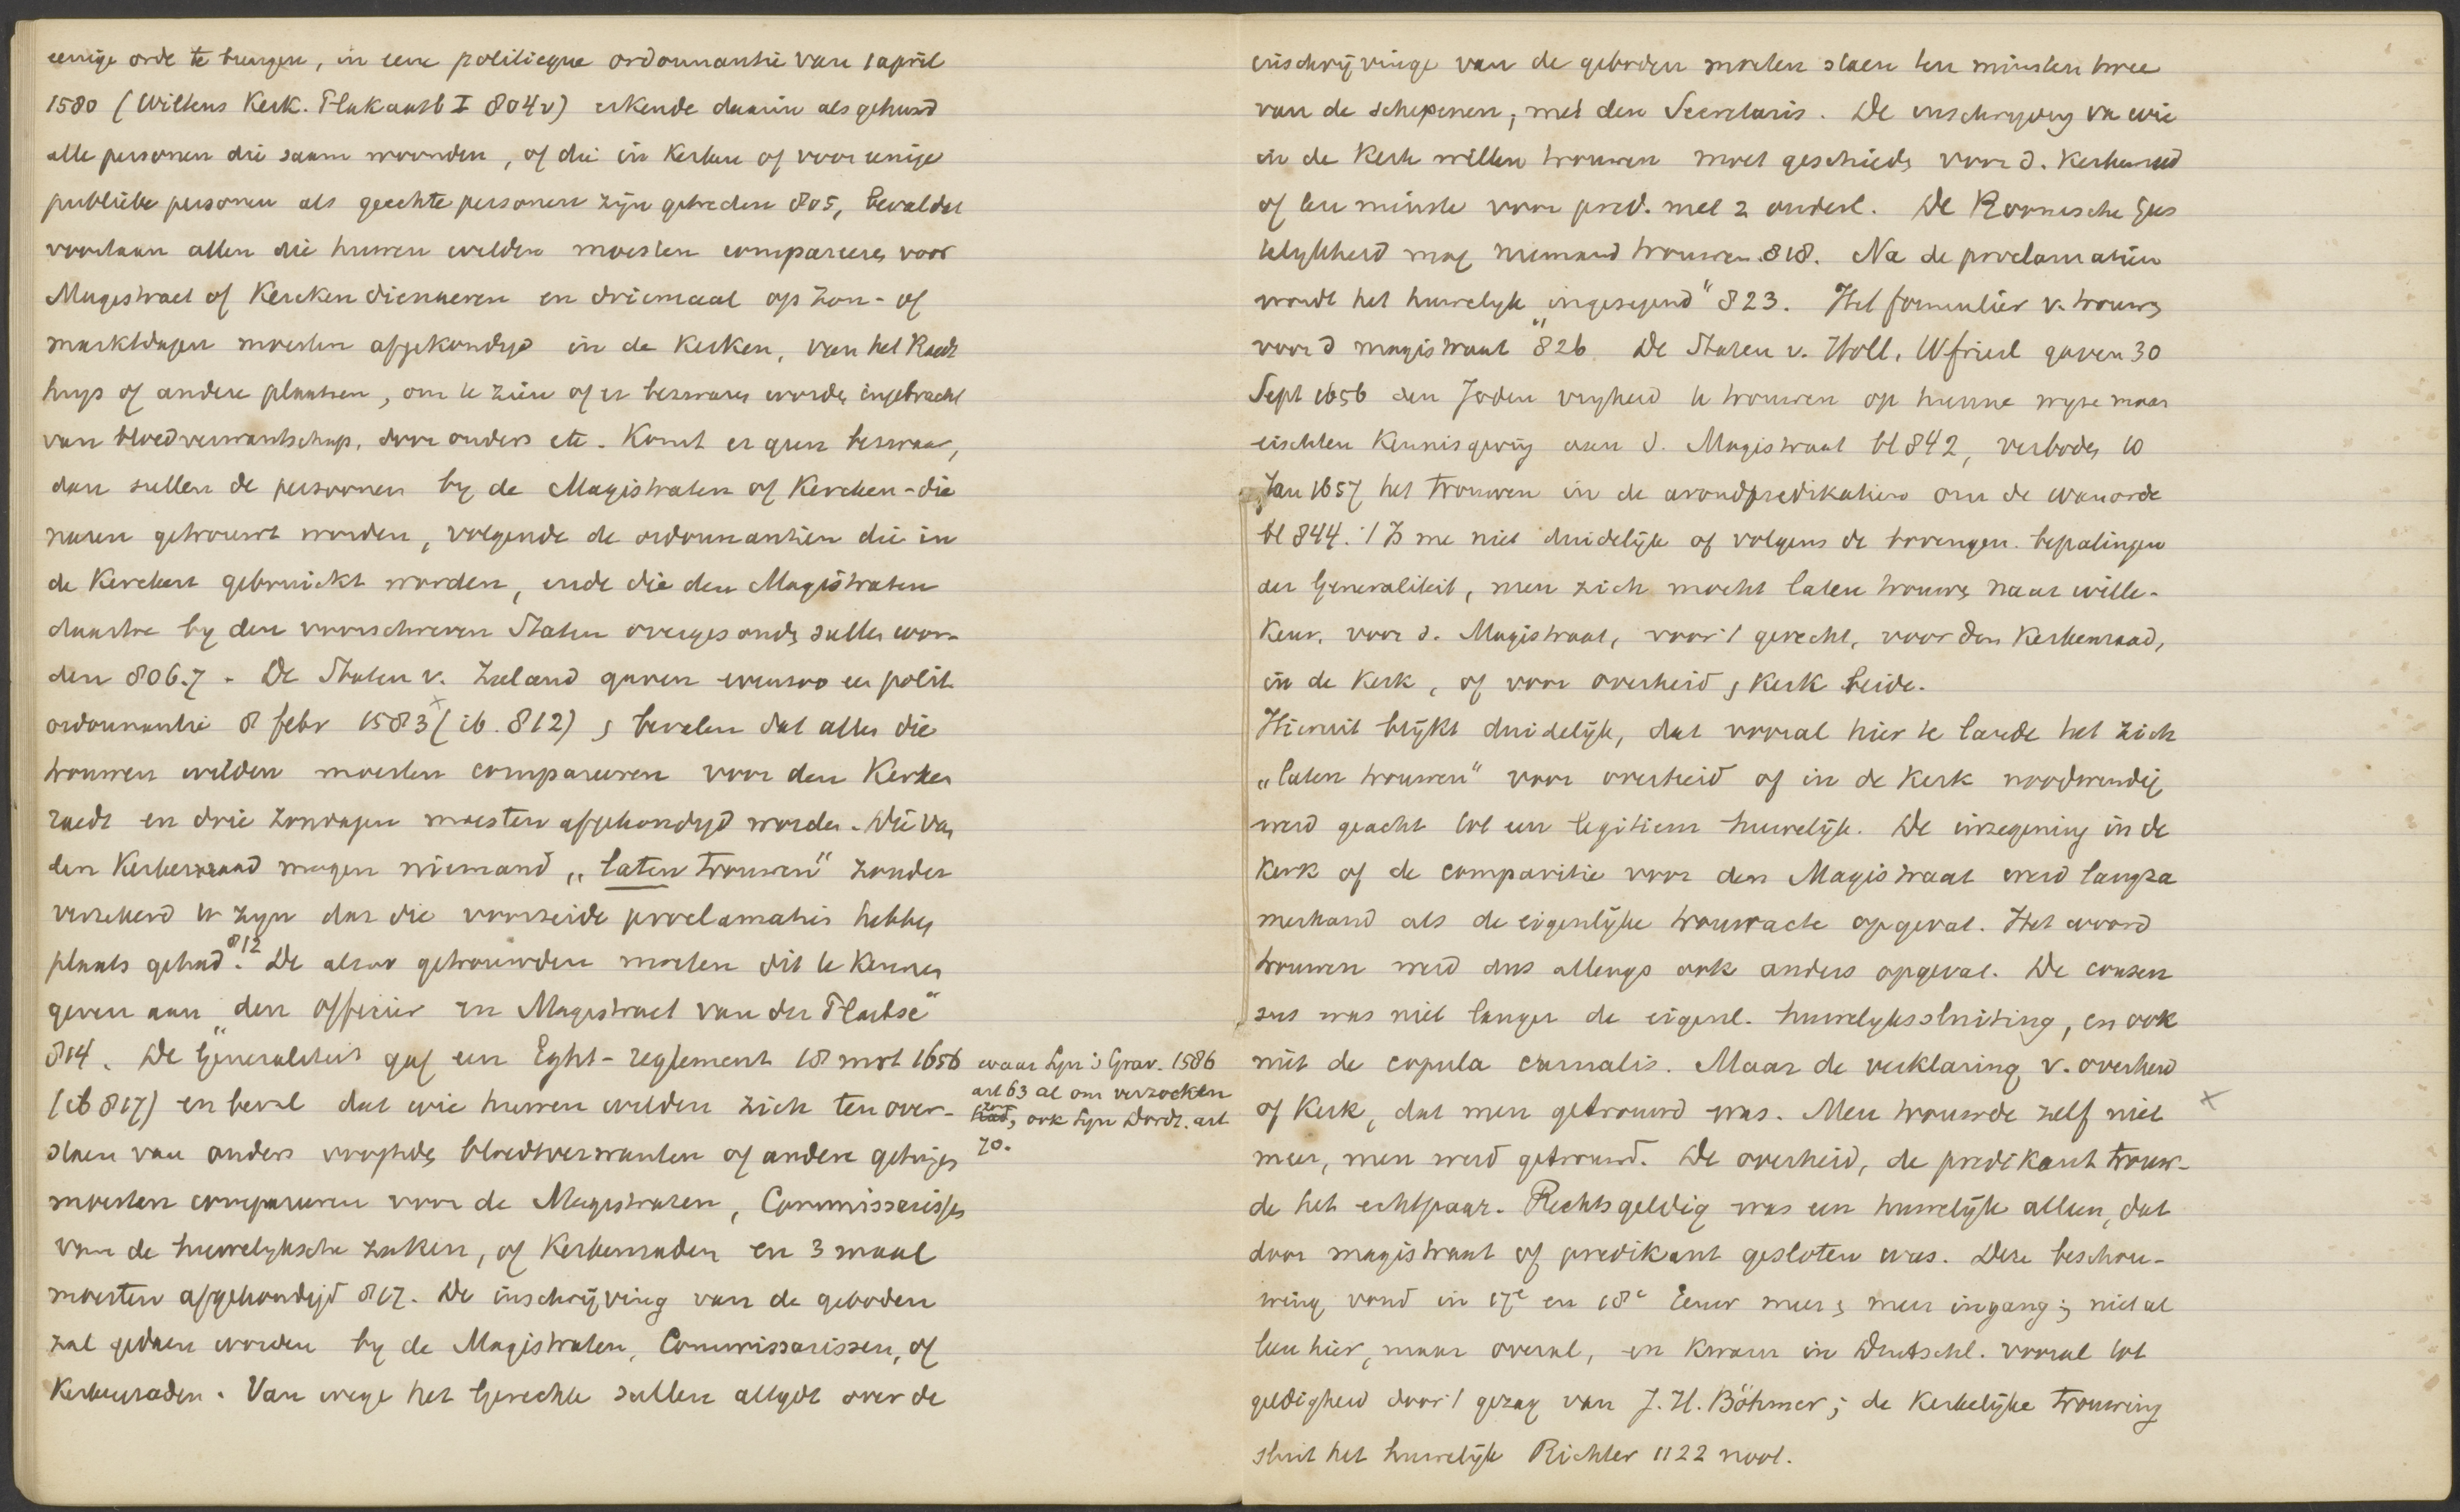 eenige orde te brengen, in eene politieque ordonnantie van 1 april
1580 (Wiltens Kerk. Plakaatb I 804v) erkende daarin als gehuwd
alle personen die saam woonden, of die in Kerken of voor eenige
publieke personen als geechte personen zijn getreden 805, beval dat
voortaan allen die huwen wilden moesten compareeren voor
Magistraet of Kercken dienaeren en driemaal op Zon- of
marktdagen moesten afgekondigd in de Kerken, van het Raedt
huys of andere plaatsen, om te zien of er bezwaren worden ingebracht
van bloedverwantschap, door ouders etc. Komt er geen bezwaar,
dan sullen de persoonen by de Magistraten of Kercken-die
naren getrouwt worden, volgende de ordonnantien die in
de Kercken gebruickt worden, ende die den Magistraten
daartoe by den voorschreven Staten overgesonden sullen wor-
den 806.7 - De Staten v. Zeeland gaven evenzoo een polit.
ordonnantie 8 febr 1583 x (ib. 812) en bevelen dat allen die
trouwen wilden moesten compareeren voor den Kerken
raedt en drie Zondagen moesten afgekondigd worden. Die van
den Kerkenraad mogen niemand „laten trouwen" zonder
verzekerd te zyn dat die voorzeide proclamatiën hebben
plaats gehad. 812 De alzoo getrouwden moeten dit te kennen
geven aan „den officier en Magistraet van der Plaetse"
814. De Generaliteit gaf een Eght-reglement 18 mrt 1656
(ib 817) en beval dat wie huwen wilden zich ten over-
staen van ouders vooghden bloedtverwanten of andere getuigen
moesten compareeren voor de Magistraten, Commissarissen
van de huwelyksche zaken, of Kerkenraden en 3 maal
moesten afgekondigd 817. De inschrijving van de geboden
zal gedaen worden by de Magistraten, Commissarissen, of
Kerkenraden. Van wege het Gerechte sullen altydt over de
waar Syn 's Grav. 1586
art 63 al om verzocken
had, ook Syn Dordr. art
70.
inschrijvinge van de geboden moeten staen ten minsten twee
van de schepenen, met den Secretaris. De inschryving van wie
in de Kerk willen trouwen moet geschieden voor d. Kerkenraad
of ten minste voor pred. met 2 ouderl. De Roomsche Gees
telykheid mag niemand trouwen 818. Na de proclamatiën
wordt het huwelyk „ingesegend" 823. Het formulier v. trouwen
voor d magistraat 826. De Staten v. Holl. Wfriesl gaven 30
Sept 1656 den Joden vryheid te trouwen op hunne wyse maar
eischten Kennisgeving aan d. Magistraat bl 842, verboden 10
Jan 1657 het trouwen in de avondpredikatiën om de wanorde
bl 844. 't Is me niet duidelijk of volgens de bovengen. bepalingen
der Generaliteit, men zich mocht laten trouwen naar wille-
keur, voor d. Magistraat, voor 't gerecht, voor den Kerkenraad,
in de Kerk, of voor overheid en Kerk beide.
Hieruit blijkt duidelijk, dat vooral hier te lande het zich
„laten trouwen" voor overheid of in de Kerk noodwendig
werd geacht tot een legitiem huwelijk. De inzegening in de
Kerk of de comparitie voor den Magistraat werd langza
merhand als de eigenlijke trouwacte opgevat. Het woord
trouwen werd dus allengs ook anders opgevat. De consen
sus was niet langer de eigenl. huwelyksluiting, en ook
niet de copula carnalis. Maar de verklaring v. overheid
of Kerk, dat men getrouwd was. Men trouwde zelf niet x
meer, men werd getrouwd. De overheid, de predikant trouw-
de het echtpaar. Rechtsgeldig was een huwelijk alleen, dat
door magistraat of predikant gesloten was. Deze beschou-
wing vond in 17e en 18e Eeuw meer en meer ingang; niet al
leen hier, maar overal, en kwam in Deutschl. vooral tot
geldigheid door 't gezag van J. H. Böhmer; de Kerkelijke trouwing
sluit het huwelijk Richter 1122 noot.